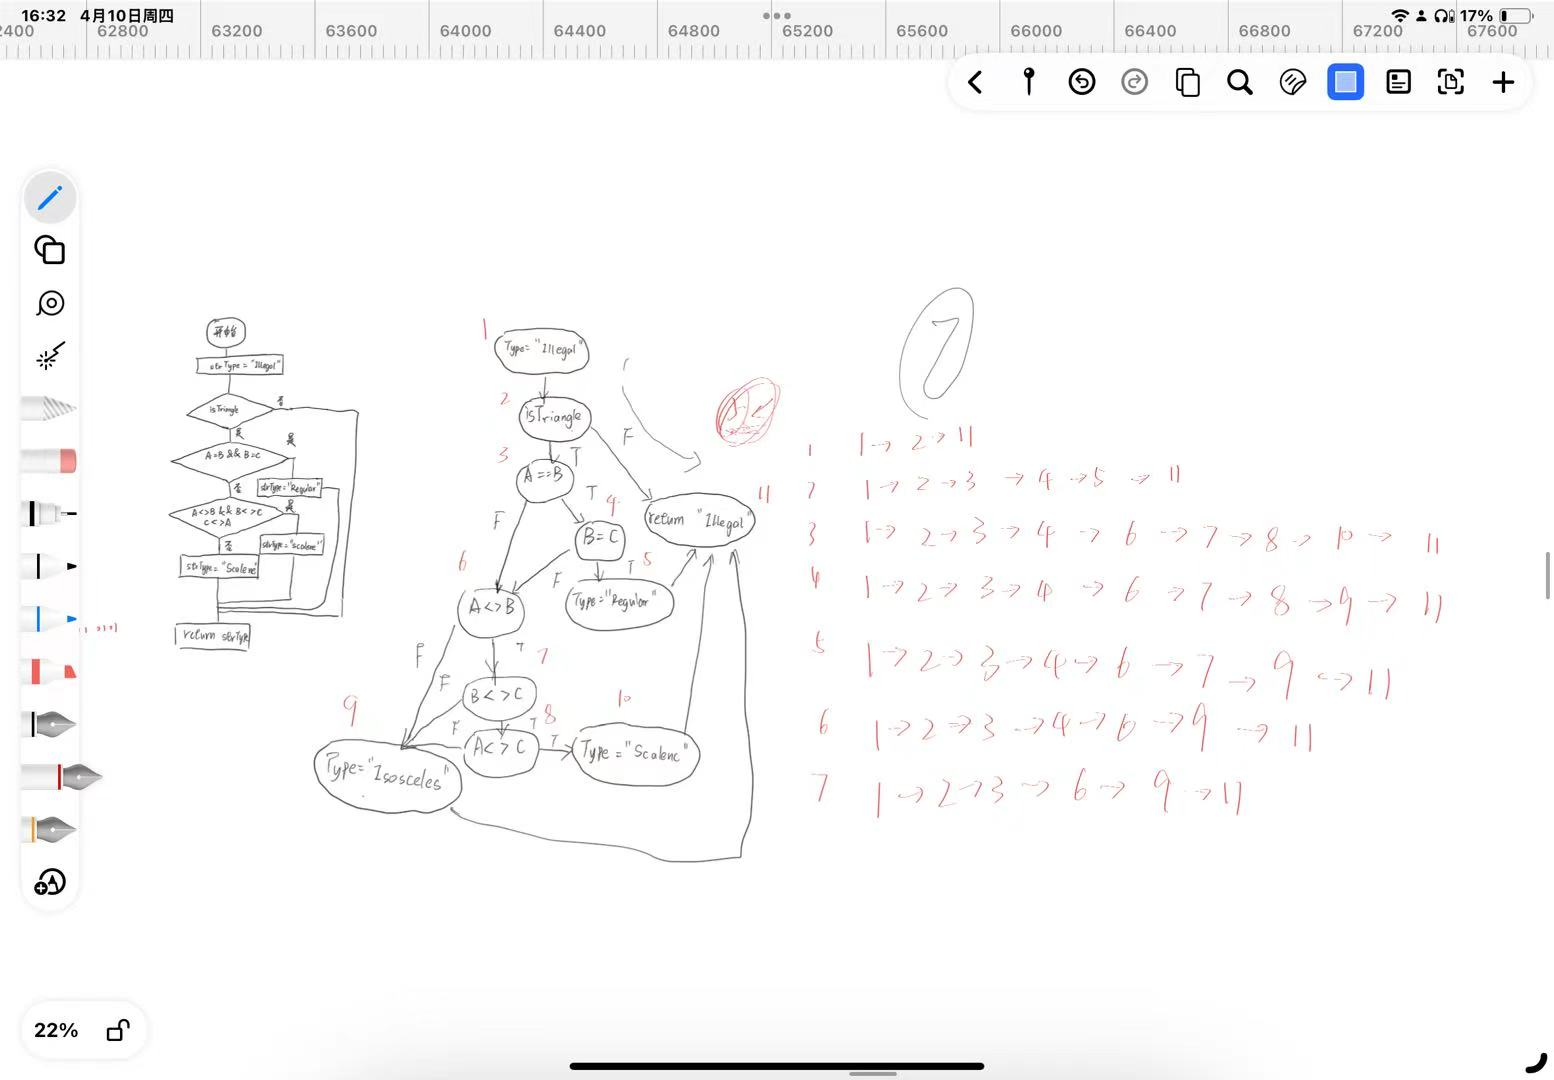 16:32 4月10日周四
17%
2400 62800 63200 63600 64000 64400 64800 65200 65600 66000 66400 66800 67200 67600
开始
strType = "Illegal"
isTriangle
否
是
A=B && B=C
是
否
strType="Regular"
A<>B && B<>C
C<>A
是
否
strType="scalene"
strType="Scalene"
return strType
1
Type="Illegal"
2
isTriangle
F
3
T
A==B
T
4
11
return "Illegal"
F
B=C
5
6
F
T
A<>B
Type="Regular"
F
T
7
F
B<>C
10
9
F
T
8
A<>C
T
Type="Scalene"
Type="Isosceles"
7
1 1→2→11
2 1→2→3→4→5→11
3 1→2→3→4→6→7→8→10→11
4 1→2→3→4→6→7→8→9→11
5 1→2→3→4→6→7→9→11
6 1→2→3→4→6→9→11
7 1→2→3→6→9→11
22%